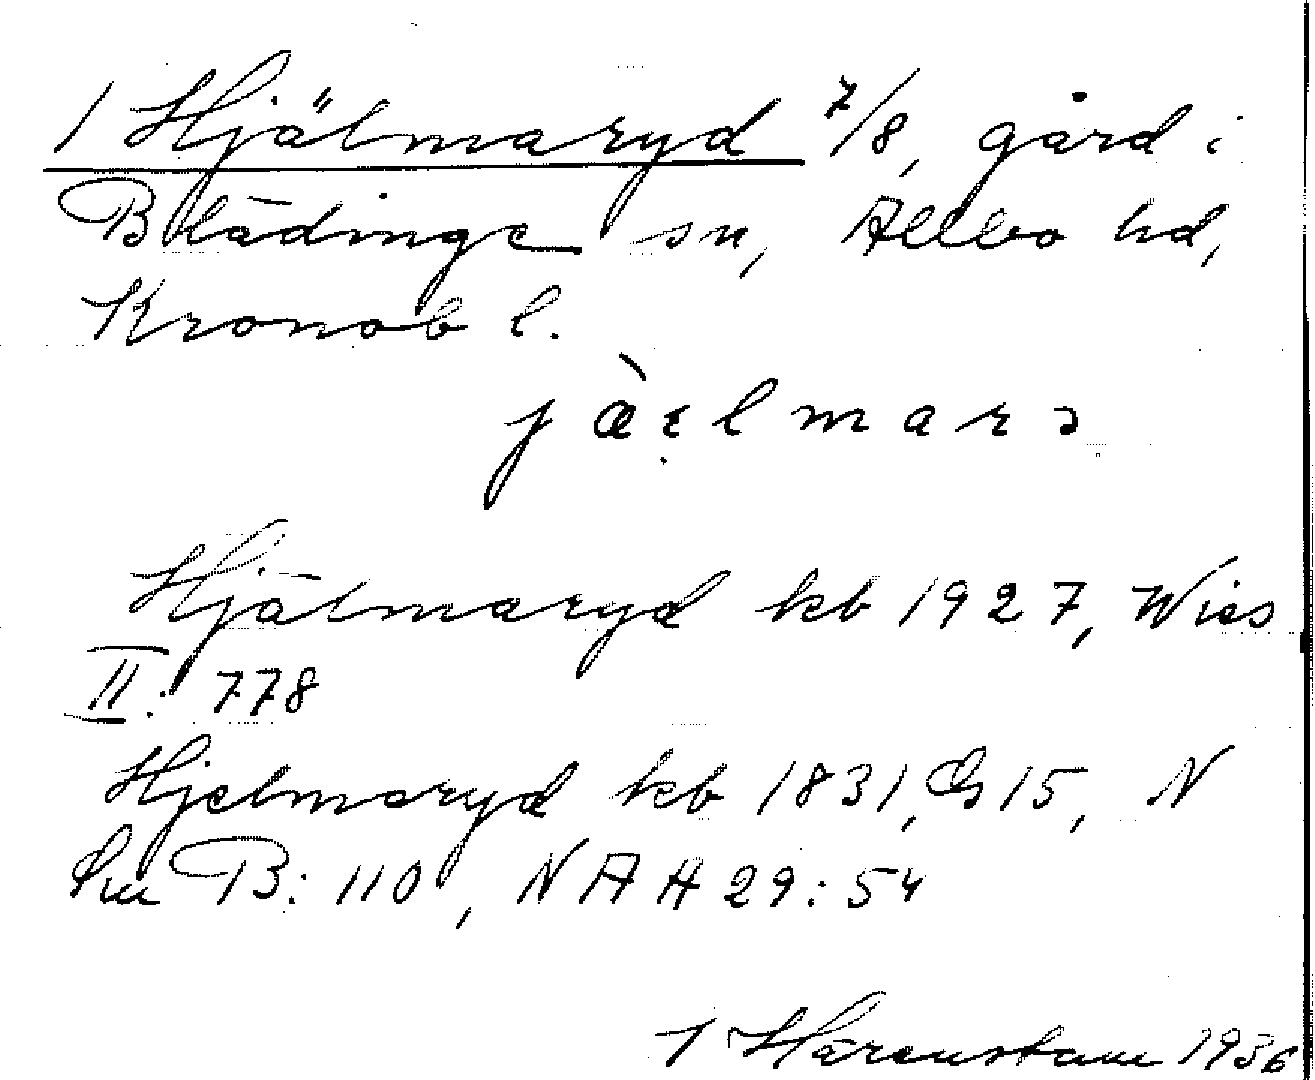 1 Hjälmaryd 7/8, gård i
Blädinge sn, Allbo hd,
Kronob l.
jàɛ̣lmarɔ
Hjälmaryd kb 1927, Wies
II: 778
Hjelmaryd kb 1831, GS 15, N
Sm B: 110, NAH 29:54
T Härenstam 1936